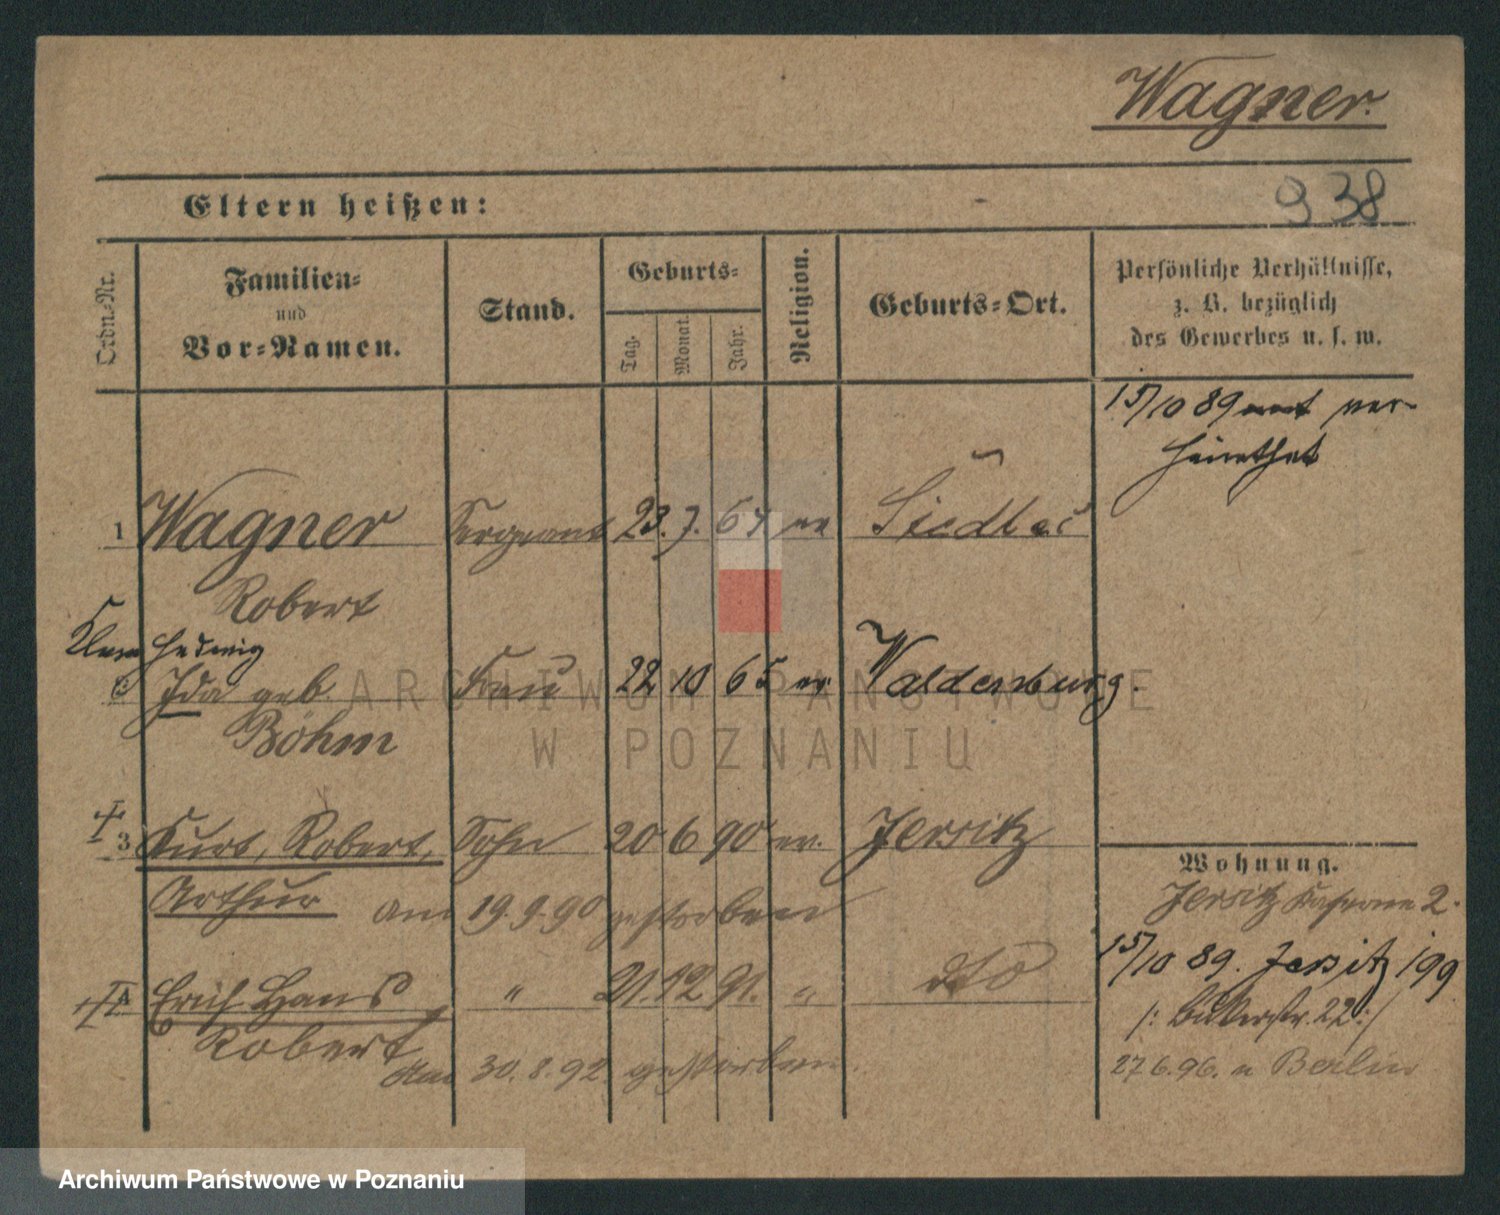 Wagner.
938
Eltern heißen:
Ordn-Nr. Familien- und Vor-Namen. Stand. Geburts- Tag. Monat. Jahr. Religion. Geburts-Ort. Persönliche Verhältnisse, z. B. bezüglich des Gewerbes u. s. w.
15/10 89 ver-
heirathet
1 Wagner Sergeant 23. 7. 67 ev Siedlec
Robert
Klara Hedwig
2 Ida geb. Frau 22 10 65 ev Waldenburg.
Böhm
3 Kurt, Robert, Sohn 20 6 90 ev. Jersitz
Arthur am 19. 9. 90 gestorben
4 Erich Hans " 21. 12 91. " dto
Robert am 30. 8. 92. gestorben.
Wohnung.
Jersitz Kaserne 2.
15/10 89. Jersitz 199
/: Bukerstr. 22 :/
27 6. 96. n Berlin
ARCHIWUM PAŃSTWOWE
W POZNANIU
Archiwum Państwowe w Poznaniu